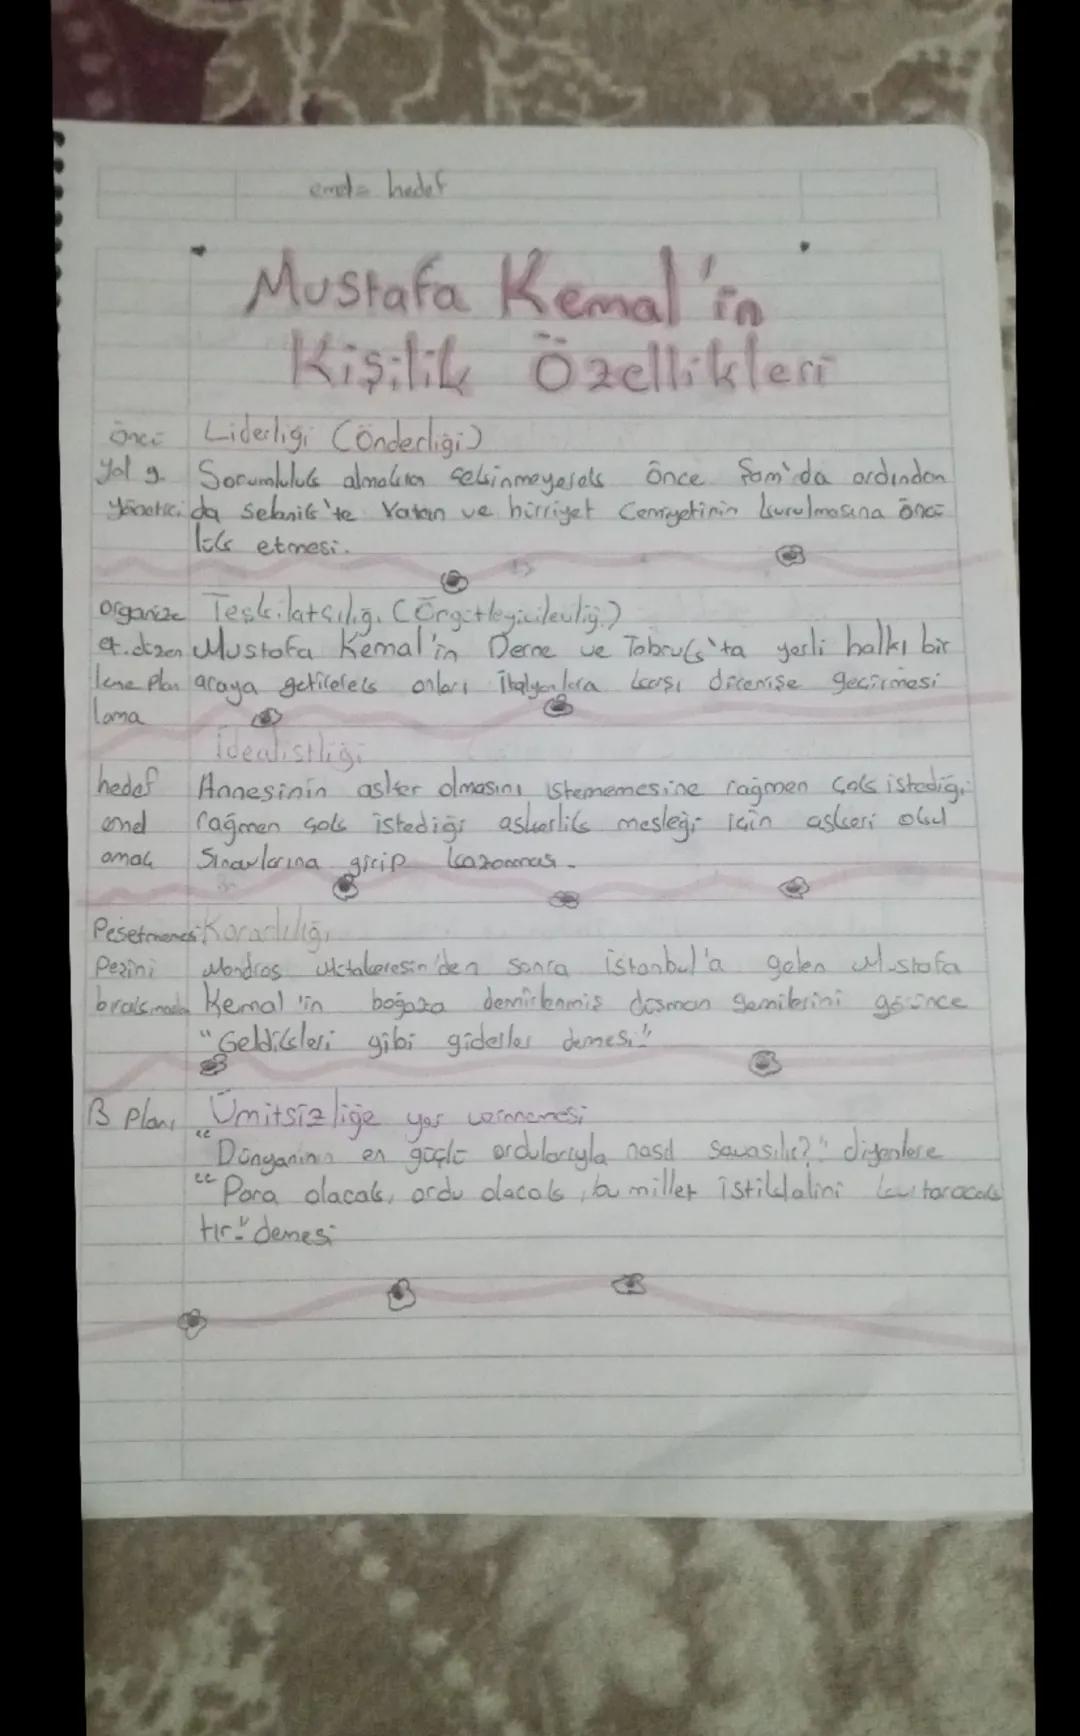 emel= hedef
Mustafa Kemal'in
Kişilik Özellikleri
öncü Liderliği (Önderliği)
yol g. Sorumluluk almaktan çekinmeyerek önce Şam'da ardından
yönetici da Selanik'te Vatan ve hürriyet Cemiyetinin kurulmasına öncü
lük etmesi.
organize Teşkilatçılığı (Örgütleyicileuliğ.)
et. düzen Mustafa Kemal'in Derne ve Tobruk'ta yerli halkı bir
leme plan araya getirerek onları İtalyanlara karşı direnişe geçirmesi
lama
İdealistliği
hedef Annesinin asker olmasını istememesine rağmen çok istediği
emel rağmen çok istediği askerlik mesleği için askeri okul
amaç Sınavlarına girip kazanması.
Pesetmemesi Kararlılığı
Peşini Mondros Mütakeresin'den sonra istanbul'a gelen Mustafa
bırakmada Kemal'in boğaza demirlenmiş düşman gemilerini görünce
"Geldikleri gibi giderler demesi."
B planı Ümitsizliğe yer vermemesi
"Dünyanının en güçlü ordularıyla nasıl savaşılır?" diyenlere
"Para olacak, ordu olacak, bu millet istiklalini kurtaracak
tır." demesi